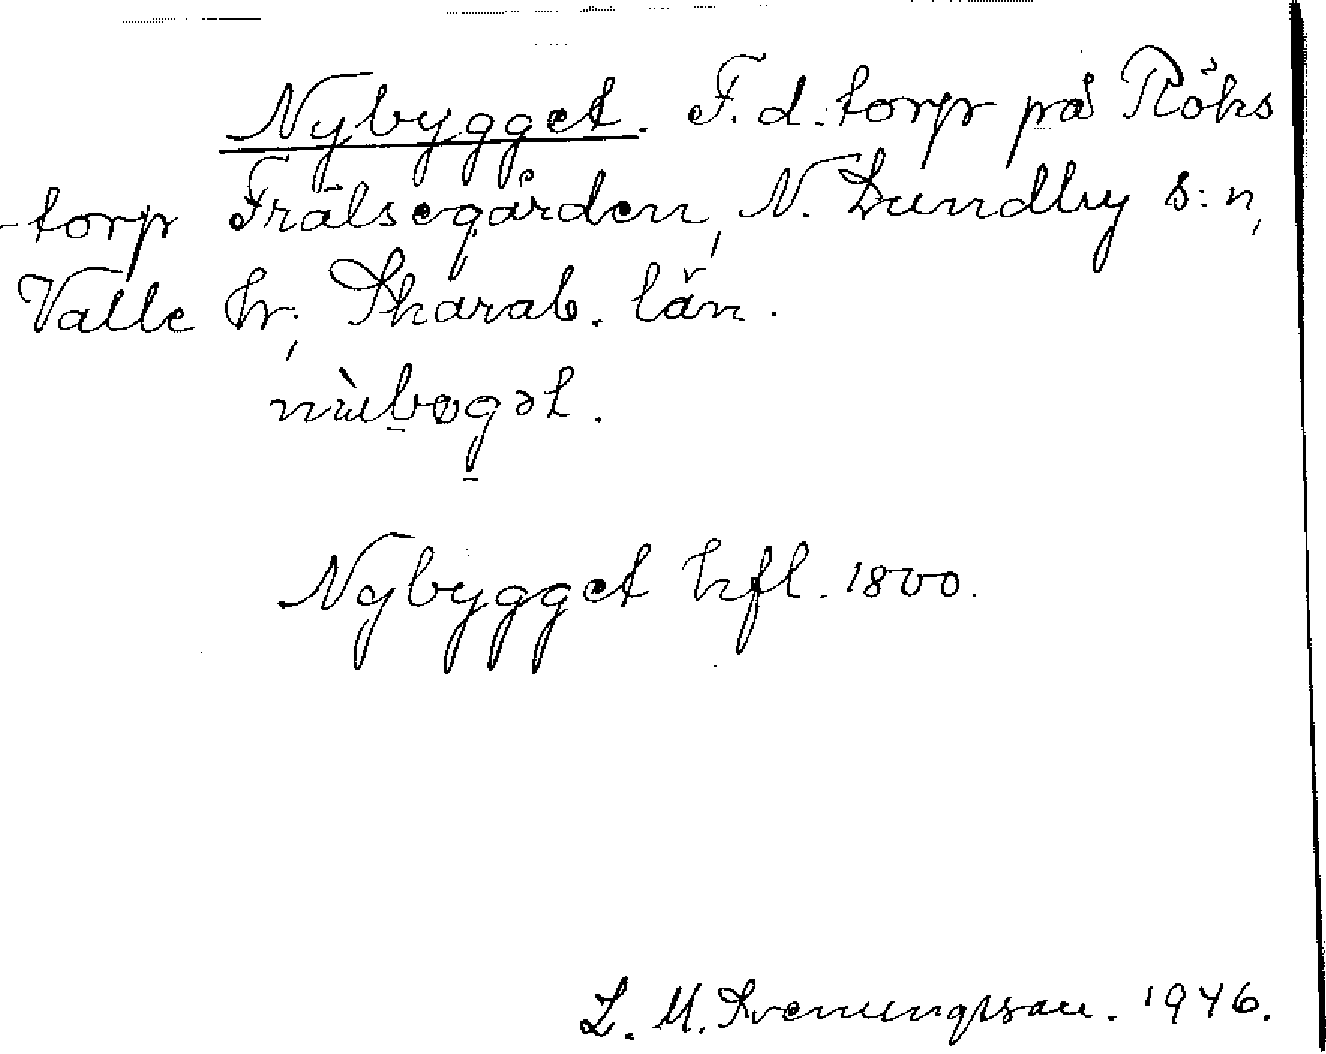 Nybygget. F. d. torp på Röks
-torp Frälsegården, N. Lundby s:n,
Valle hr, Skarab. län.
nỳbøgət.
Nybygget hfl. 1800.
L. M. Svenungsson. 1946.